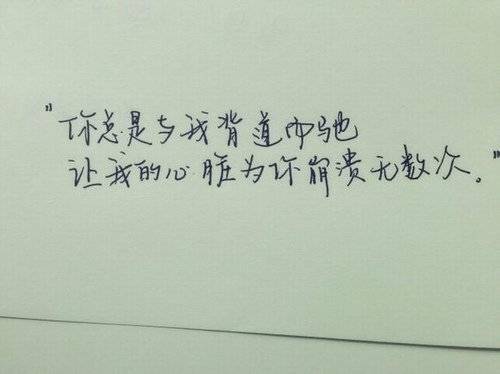 "你总是与我背道而驰
让我的心脏为你崩溃无数次。"